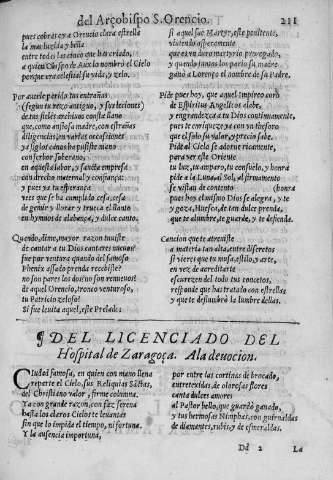 del Arçobispo S. Orencio. 211
pues cobras oy a Orencio clara estrella
la mas luzida y bella
entre todas las cinco que has criado,
a quien Obispo de Aux lo nombrò el Cielo
porque era celestial su vida, y zelo.
Por aquella perdio tus entrañas
(segun tu rezo antiguo, y sus leciones)
de tus fieles archivos consta llano
que, como ansiosa madre, con estrañas
diligencias en varias ocasiones
ya siglos ha no he puesto mano
con señor soberano,
en aquesta labor, y santa empresa
con derecho maternal y compassa:
y pues ya tu esperança
vees que se ha cumplido cessa, cessa
de gemir y llorar y trueca el llanto
en hymnos de alabança, y dulce canto.
Quando, dime, mayor razon tuviste
de cantar a tu Dios cantares nuevos
fue por ventura quando del famoso
Phenix assado prenda recebiste
no son pares los dones son renuevos
de aquel Orencio, tronco venturoso,
tu Patricio zeloso!
Si fue levita aquel, este Prelado:
si aquel fue Martyr, este penitente,
viviendo asperamente
que es un duro martyrio prorogado,
y quando fuera los pario si, madre
ganò a Lorenço el nombre de su Padre.
Pide pues hoy, que aquel impireo coro
de Espiritus Angelicos alabe,
y engrandezca a tu Dios continuamente,
pues te enriqueze ya con un thesoro
que el solo su valor, y precio sabe.
Pide al Cielo se adorne ricamente,
para ver este Oriente
tu luz, tu amparo, tu consuelo, y honra
pide a la Luna, al Sol, al firmamento
se vistan de contento (honra
pues hoy el mismo Dios se alegra, y te
y goza, Huesca, de tan dulce prenda,
que te alumbre, te guarde, y te defienda.
Cancion que te atreviste
a materia tan alta, entre discretos
si vieres que tu musa, estilo, y arte,
en vez de acreditarte
escurezen del todo tus concetos,
responde que has tratado con estrellas
y que te deslumbrò la lumbre dellas.
¶ DEL LICENCIADO DEL
Hospital de Zaragoça. A la devocion.
Ciudad famosa, en quien con mano llena
reparte el Cielo sus Reliquias Sãctas,
del Christiano valor, firme coluna,
Ya con grande razon, con faz serena
hasta los claros Cielos te levantas
sin que lo impida el tiempo, ni fortuna.
Y la ausencia importuna,
por entre las cortinas de brocado,
entretexidas, de olorosas flores
canta dulces amores
al Pastor bello, que guardò ganado,
y tus hermosas Nimphas, con guirnaldas
de diamantes, rubis, y de esmeraldas.
Dd 2 La